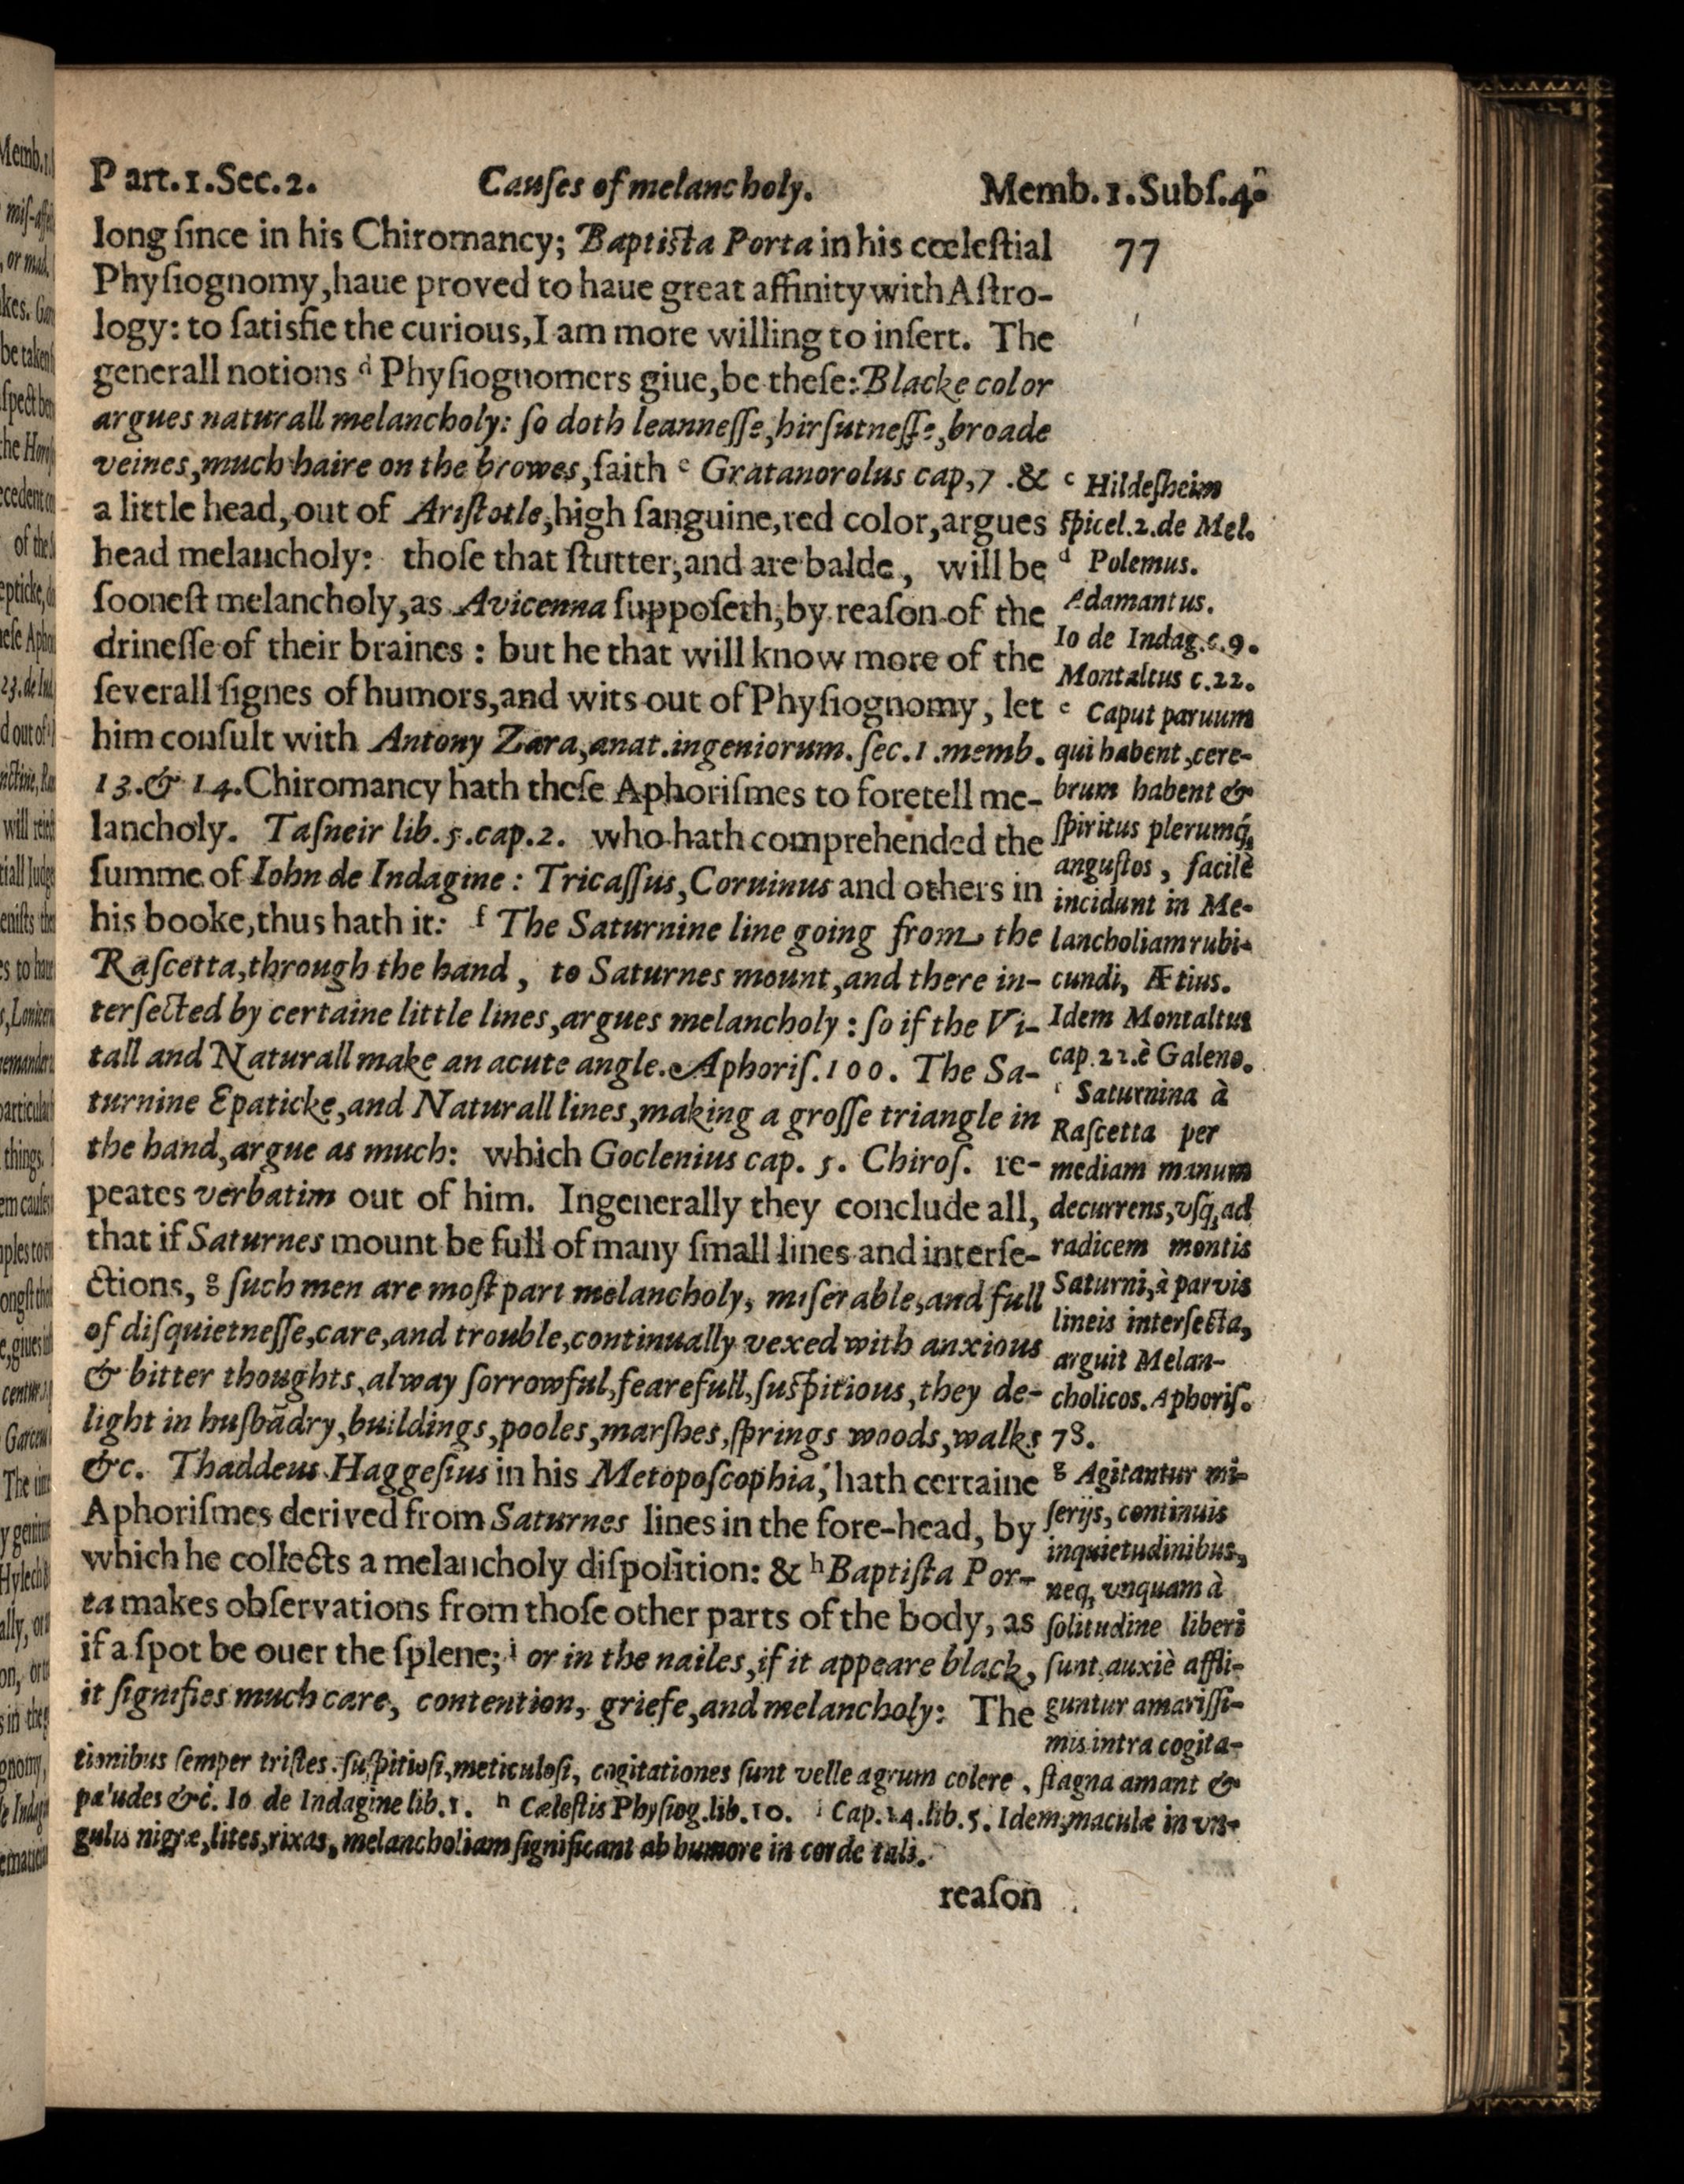 Part.1.Sec.2. Cauſes of melancholy. Memb.1.Subſ.4.
77
long ſince in his Chiromancy; Baptiſta Porta in his cœleſtial
Phyſiognomy,haue proved to haue great affinity with Aſtro-
logy: to ſatisfie the curious,I am more willing to inſert. The
generall notions d Phyſiognomers giue,be theſe: Blacke color
argues naturall melancholy: ſo doth leanneſſe,hirſutneſſe,broade
veines,much haire on the browes,ſaith e Gratanorolus cap,7 .&
a little head, out of Ariſtotle,high ſanguine,red color,argues
head melancholy: thoſe that ſtutter,and are balde, will be
ſooneſt melancholy,as Avicenna ſuppoſeth,by reaſon of the
drineſſe of their braines : but he that will know more of the
ſeverall ſignes of humors,and wits out of Phyſiognomy, let
him conſult with Antony Zara,anat.ingeniorum.ſec.1.memb.
13.& 14.Chiromancy hath theſe Aphoriſmes to foretell me-
lancholy. Taſneir lib.5.cap.2. who hath comprehended the
ſumme of Iohn de Indagine : Tricaſſus,Coruinus and others in
his booke,thus hath it: f The Saturnine line going from the
Raſcetta,through the hand, to Saturnes mount,and there in-
terſected by certaine little lines,argues melancholy : ſo if the Vi-
tall and Naturall make an acute angle.Aphoriſ.100. The Sa-
turnine Epaticke,and Naturall lines,making a groſſe triangle in
the hand,argue as much: which Goclenius cap. 5. Chiroſ. re-
peates verbatim out of him. Ingenerally they conclude all,
that if Saturnes mount be full of many ſmall lines and interſe-
ctions, g ſuch men are moſt part melancholy, miſerable,and full
of diſquietneſſe,care,and trouble,continually vexed with anxious
& bitter thoughts,alway ſorrowful,fearefull,ſuſpitious,they de-
light in huſbādry,buildings,pooles,marſhes,ſprings woods,walks
&c. Thaddeus Haggeſius in his Metopoſcophia, hath certaine
Aphoriſmes derived from Saturnes lines in the fore-head, by
which he collects a melancholy diſpoſition: & h Baptiſta Por-
ta makes obſervations from thoſe other parts of the body, as
if a ſpot be ouer the ſplene; i or in the nailes,if it appeare black,
it ſignifies much care, contention, griefe,and melancholy: The
c Hildeſheim
ſpicel.2.de Mel.
d Polemus.
Adamantus.
Io de Indag.c.9.
Montaltus c.22.
e Caput paruum
qui habent,cere-
brum habent &
ſpiritus plerumq́,
anguſtos, facilè
incidunt in Me-
lancholiam rubi-
cundi, Ætius.
Idem Montaltus
cap.21.è Galeno.
f Saturnina à
Raſcetta per
mediam manum
decurrens,vſq,ad
radicem montis
Saturni,à parvis
lineis interſecta,
arguit Melan-
cholicos.Aphoriſ.
78.
g Agitantur mi-
ſerijs, continuis
inquietudinibus,
neq, vnquam à
ſolitudine liberi
ſunt,auxiè affli-
guntur amariſſi-
mis intra cogita-
tionibus ſemper triſtes.ſuſpitioſi,meticuloſi, cogitationes ſunt velle agrum colere, ſtagna amant &
paludes &c. Io de Indagine lib.1. h Cæleſtis Phyſiog.lib.10. i Cap.14.lib.5. Idem,maculæ in vn-
gulis nigræ,lites,rixas,melancholiam ſignificant ab humore in corde tali.
reaſon